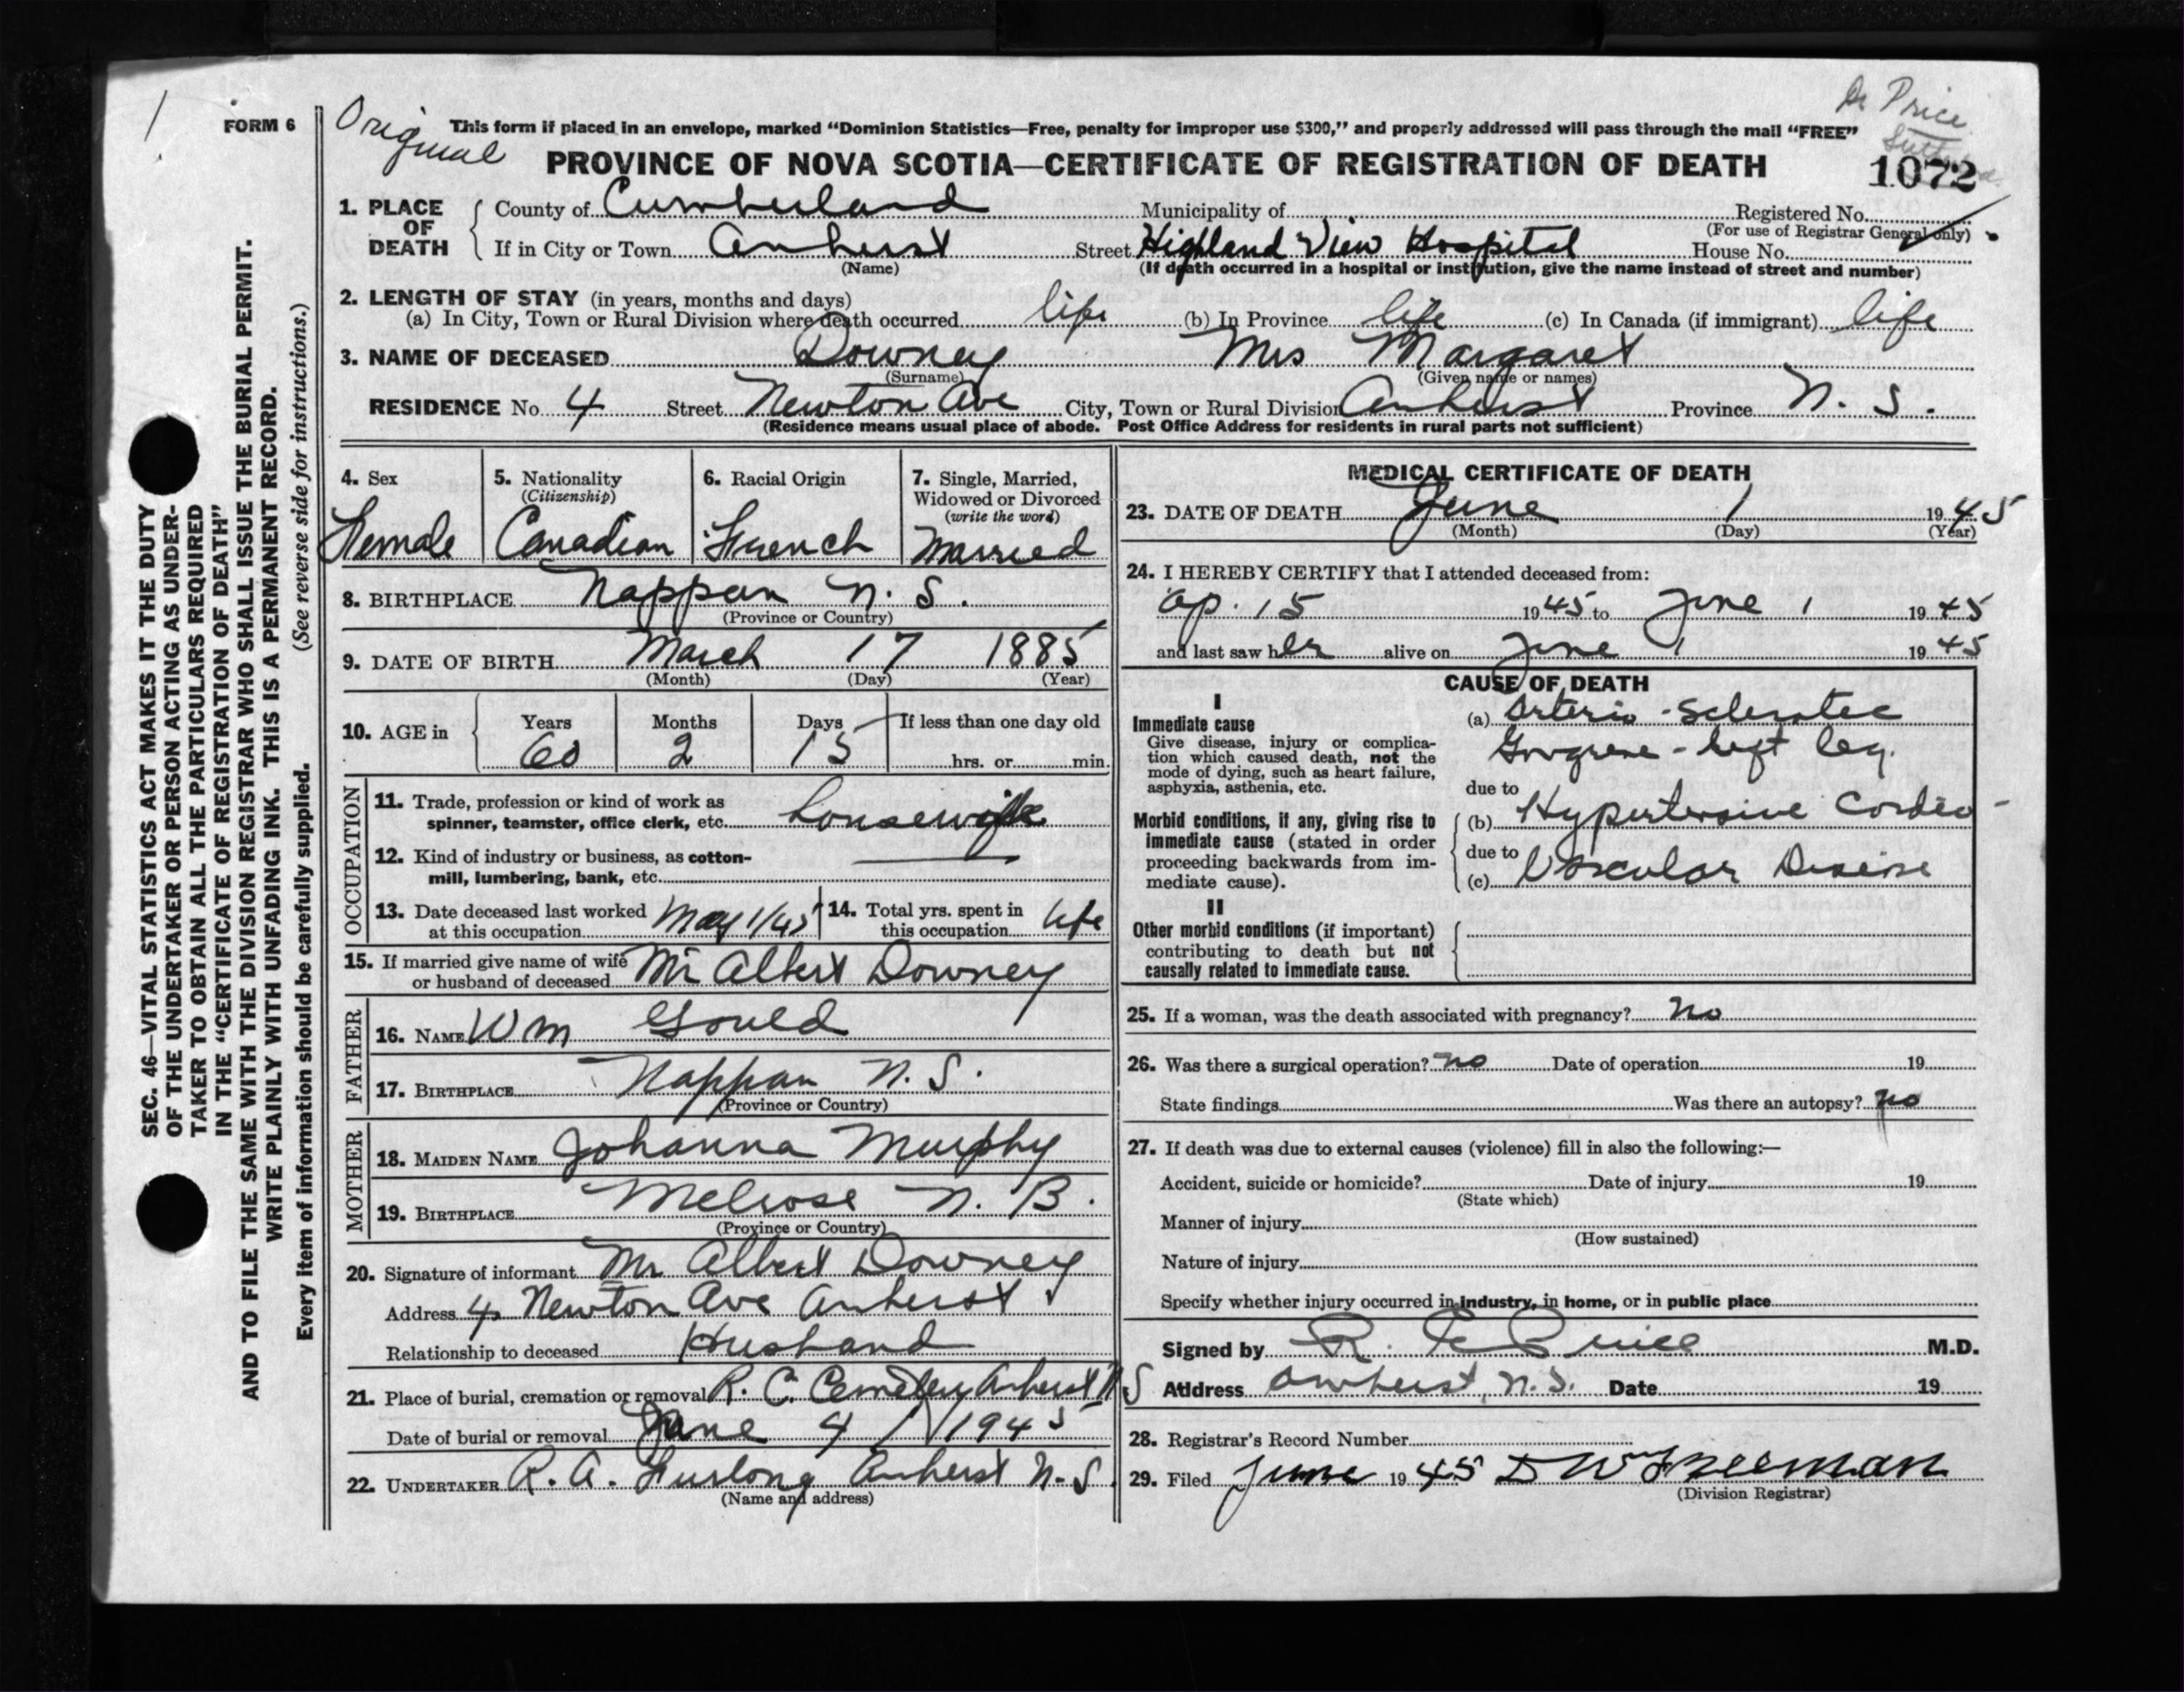 1
FORM 6
Original
Dr Price
This form if placed in an envelope, marked "Dominion Statistics—Free, penalty for improper use $300," and properly addressed will pass through the mail "FREE"
PROVINCE OF NOVA SCOTIA—CERTIFICATE OF REGISTRATION OF DEATH
1072
1. PLACE OF DEATH
County of Cumberland Municipality of Registered No.
(For use of Registrar General only)
If in City or Town Amherst Street Highland View Hospital House No.
(Name) (If death occurred in a hospital or institution, give the name instead of street and number)
2. LENGTH OF STAY (in years, months and days)
(a) In City, Town or Rural Division where death occurred life (b) In Province life (c) In Canada (if immigrant) life
3. NAME OF DECEASED Downey Mrs Margaret
(Surname) (Given name or names)
RESIDENCE No. 4 Street Newton Ave City, Town or Rural Division Amherst Province N. S.
(Residence means usual place of abode. Post Office Address for residents in rural parts not sufficient)
4. Sex
Female
5. Nationality
(Citizenship)
Canadian
6. Racial Origin
French
7. Single, Married,
Widowed or Divorced
(write the word)
Married
8. BIRTHPLACE Nappan N. S.
(Province or Country)
9. DATE OF BIRTH March 17 1885
(Month) (Day) (Year)
10. AGE in Years Months Days If less than one day old
60 2 15 hrs. or min.
OCCUPATION
11. Trade, profession or kind of work as
spinner, teamster, office clerk, etc. housewife
12. Kind of industry or business, as cotton-
mill, lumbering, bank, etc.
13. Date deceased last worked
at this occupation May 1/45
14. Total yrs. spent in
this occupation life
15. If married give name of wife
or husband of deceased Mr Albert Downey
FATHER
16. NAME Wm Gould
17. BIRTHPLACE Nappan N. S.
(Province or Country)
MOTHER
18. MAIDEN NAME Johanna Murphy
19. BIRTHPLACE Melrose N. B.
(Province or Country)
20. Signature of informant Mr Albert Downey
Address 4 Newton Ave Amherst
Relationship to deceased Husband
21. Place of burial, cremation or removal R. C. Cemetery Amherst N S
Date of burial or removal June 4 / 1945
22. UNDERTAKER R. A. Furlong Amherst N. S.
(Name and address)
MEDICAL CERTIFICATE OF DEATH
23. DATE OF DEATH June 1 1945
(Month) (Day) (Year)
24. I HEREBY CERTIFY that I attended deceased from:
Ap. 15 1945 to June 1 1945
and last saw her alive on June 1 1945
CAUSE OF DEATH
I
Immediate cause
Give disease, injury or complica-
tion which caused death, not the
mode of dying, such as heart failure,
asphyxia, asthenia, etc.
(a) Arterio-sclerotic
Gangrene - left leg.
due to
Morbid conditions, if any, giving rise to
immediate cause (stated in order
proceeding backwards from im-
mediate cause).
(b) Hypertensive Cardio-
due to
(c) Vascular Disease
II
Other morbid conditions (if important)
contributing to death but not
causally related to immediate cause.
25. If a woman, was the death associated with pregnancy? No
26. Was there a surgical operation? no Date of operation 19
State findings Was there an autopsy? no
27. If death was due to external causes (violence) fill in also the following:—
Accident, suicide or homicide? Date of injury 19
(State which)
Manner of injury
(How sustained)
Nature of injury
Specify whether injury occurred in industry, in home, or in public place
Signed by R. E. Price M.D.
Address Amherst, N. S. Date 19
28. Registrar's Record Number
29. Filed June 1945 D W Freeman
(Division Registrar)
SEC. 46—VITAL STATISTICS ACT MAKES IT THE DUTY
OF THE UNDERTAKER OR PERSON ACTING AS UNDER-
TAKER TO OBTAIN ALL THE PARTICULARS REQUIRED
IN THE "CERTIFICATE OF REGISTRATION OF DEATH"
AND TO FILE THE SAME WITH THE DIVISION REGISTRAR WHO SHALL ISSUE THE BURIAL PERMIT.
WRITE PLAINLY WITH UNFADING INK. THIS IS A PERMANENT RECORD.
Every item of information should be carefully supplied. (See reverse side for instructions.)